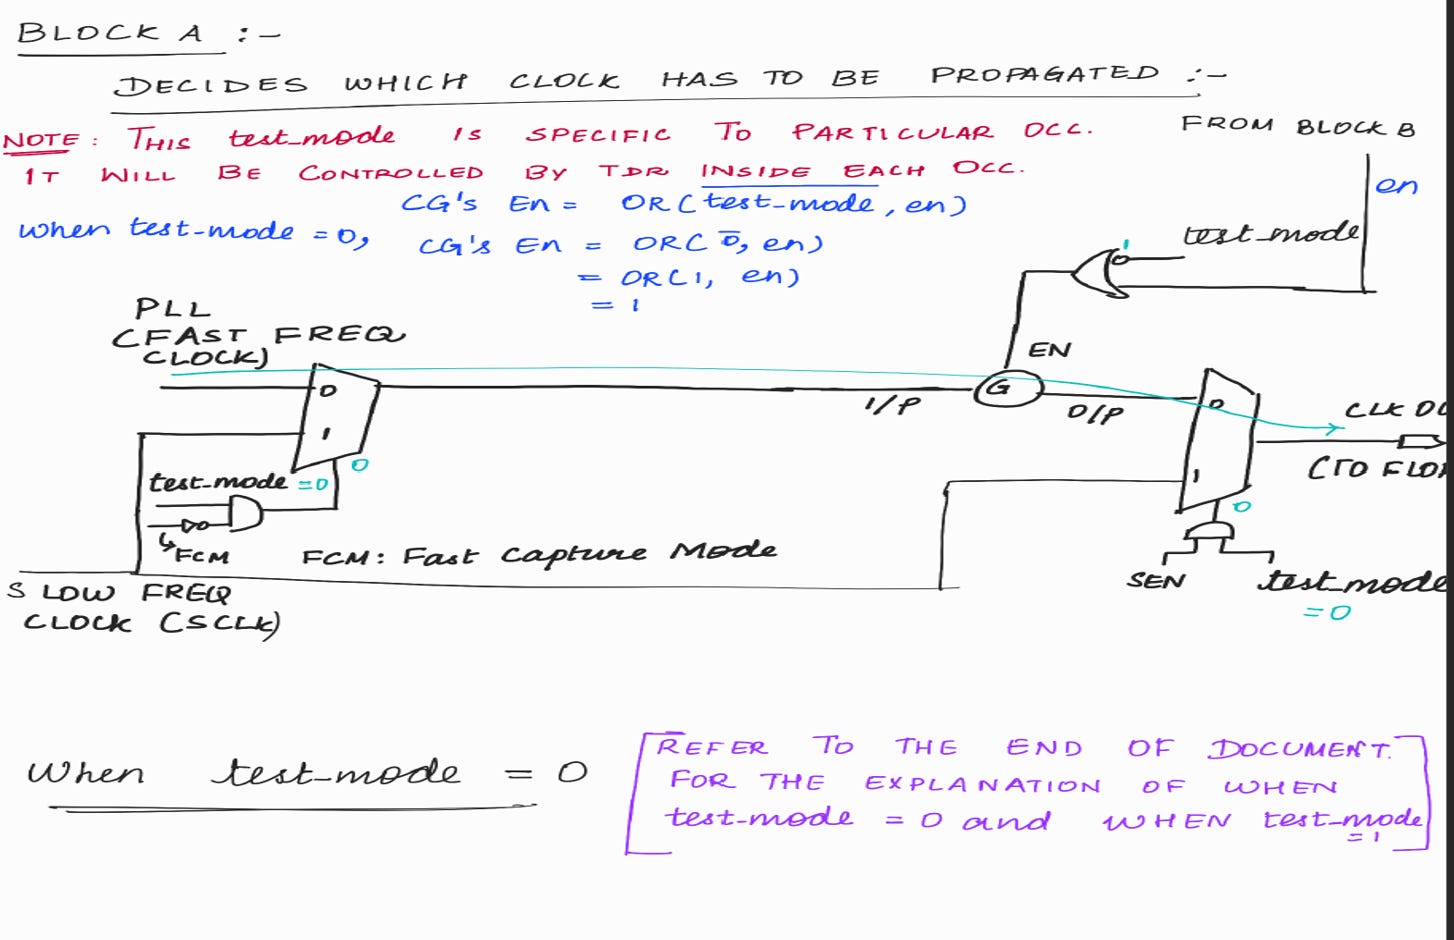 BLOCK A :-
DECIDES WHICH CLOCK HAS TO BE PROPAGATED :-
NOTE : THIS test_mode IS SPECIFIC TO PARTICULAR OCC.
IT WILL BE CONTROLLED BY TDR INSIDE EACH OCC.
FROM BLOCK B
en
CG's En = OR( test-mode, en)
when test-mode = 0, CG's En = OR( 0, en)
= OR(1, en)
= 1
1
test_mode
PLL
(FAST FREQ
CLOCK)
EN
0
1
G
I/P
O/P
0
1
CLK OU
(TO FLOP
0
test_mode = 0
FCM
FCM : Fast Capture Mode
0
SEN
test_mode
= 0
SLOW FREQ
CLOCK (SCLK)
When test-mode = 0
[REFER TO THE END OF DOCUMENT.
FOR THE EXPLANATION OF WHEN
test-mode = 0 and WHEN test_mode
= 1]